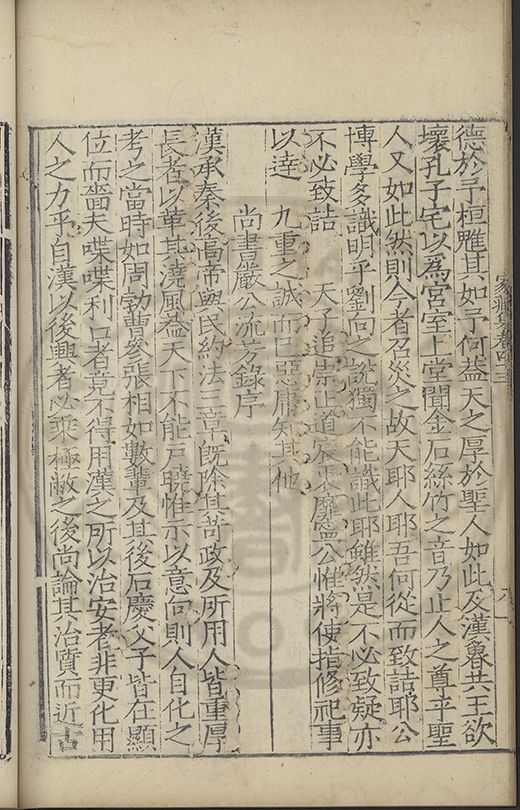 德於予桓魋其如予何葢天之厚於聖人如此及漢魯共王欲
壞孔子宅以爲宮室上堂聞金石絲竹之音乃止人之尊乎聖
人又如此然則今者召災之故天耶人耶吾何從而致詰耶公
博學多識明乎劉向之說獨不能識此耶雖然是不必致疑亦
不必致詰 天子追崇正道宸衷靡寧公惟將使指修祀事
以達 九重之誠而已惡庸知其他
尚書嚴公流芳錄序
漢承秦後高帝與民約法三章旣除其苛政及所用人皆重厚
長者以革其澆風葢天下不能戶曉惟示以意向則人自化之
考之當時如周勃曹參張相如數輩及其後石慶父子皆在顯
位而嗇夫喋喋利口者竟不得用漢之所以治安者非更化用
人之力乎自漢以後興者必乘極敝之後尚論其治質而近古
家藏集卷四十三
八